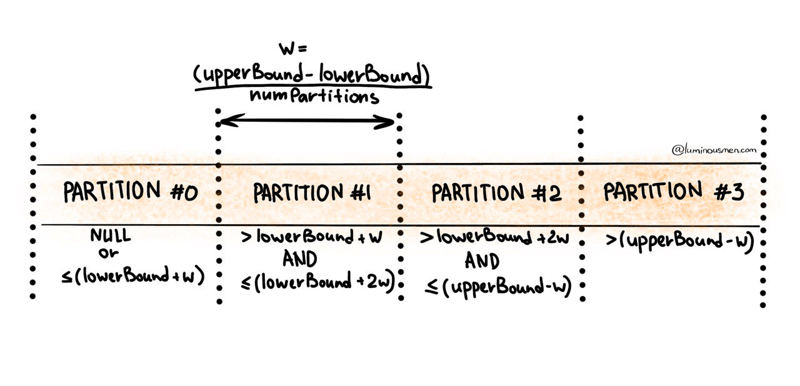 W =
(upperBound - lowerBound)
numPartitions
@luminousmen.com
PARTITION #0
PARTITION #1
PARTITION #2
PARTITION #3
NULL
or
≤(lowerBound+w)
>lowerBound+w
AND
≤(lowerBound+2w)
>lowerBound+2w
AND
≤(upperBound-w)
>(upperBound-w)